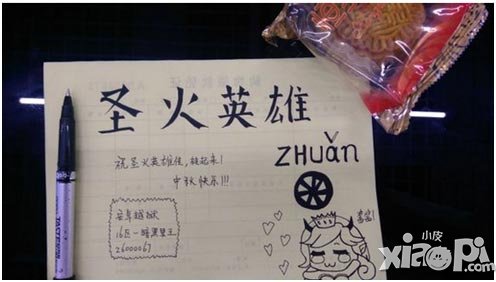 圣火英雄
祝圣火英雄佳,转起来!
中秋快乐!!!
ZHUǎn
安卓越狱
16区-暗黑黑王
26000067
小皮
xiaopi.com